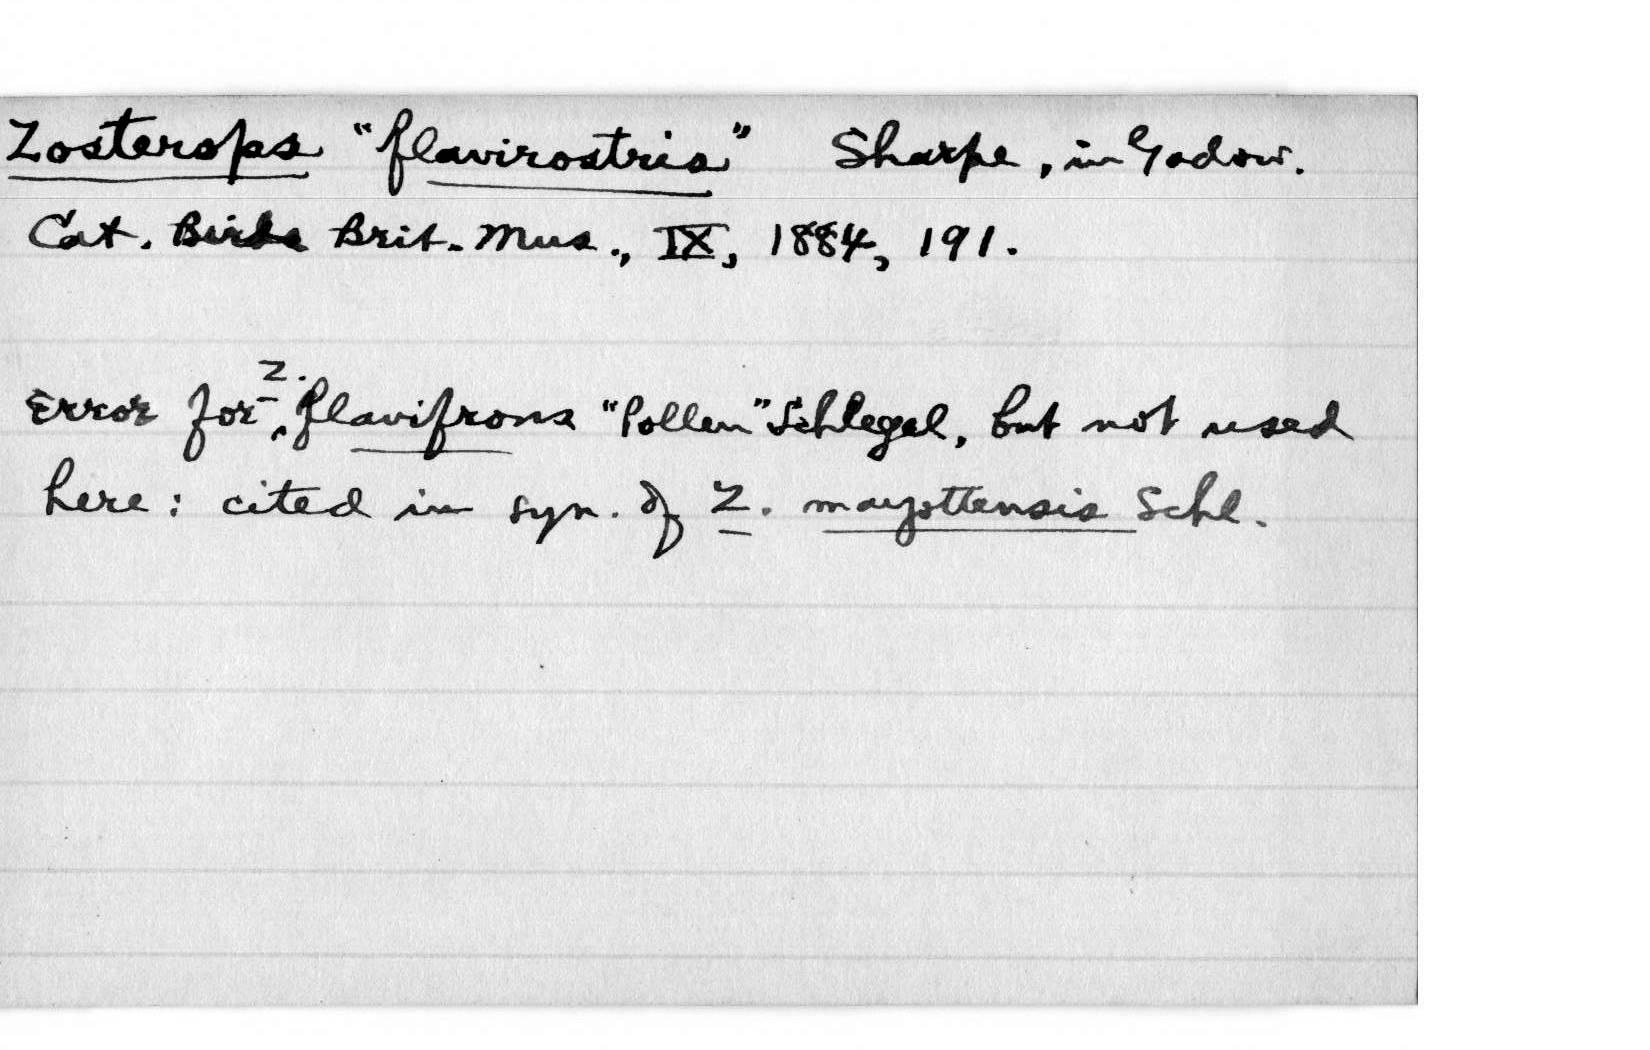 Zosterops "flavirostris" Sharpe, in Gadow.
Cat. Birds Brit. Mus., IX, 1884, 191.
Error for Z. flavifrons "Pollen" Schlegel, but not used
here: cited in syn. of Z. mayottensis Schl.